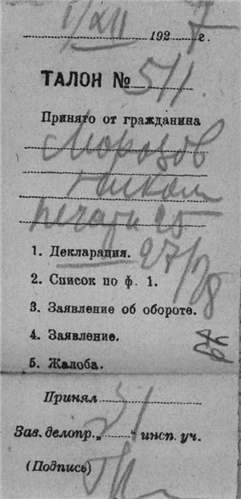 1/XII 1927 г.
ТАЛОН № 511.
Принято от гражданина
Морозов
печати 25
1. Декларация. 27/
2. Список по ф. 1.
3. Заявление об обороте.
4. Заявление.
5. Жалоба.
Принял
Зав. делопр. „......“ инсп. уч.
(Подпись)